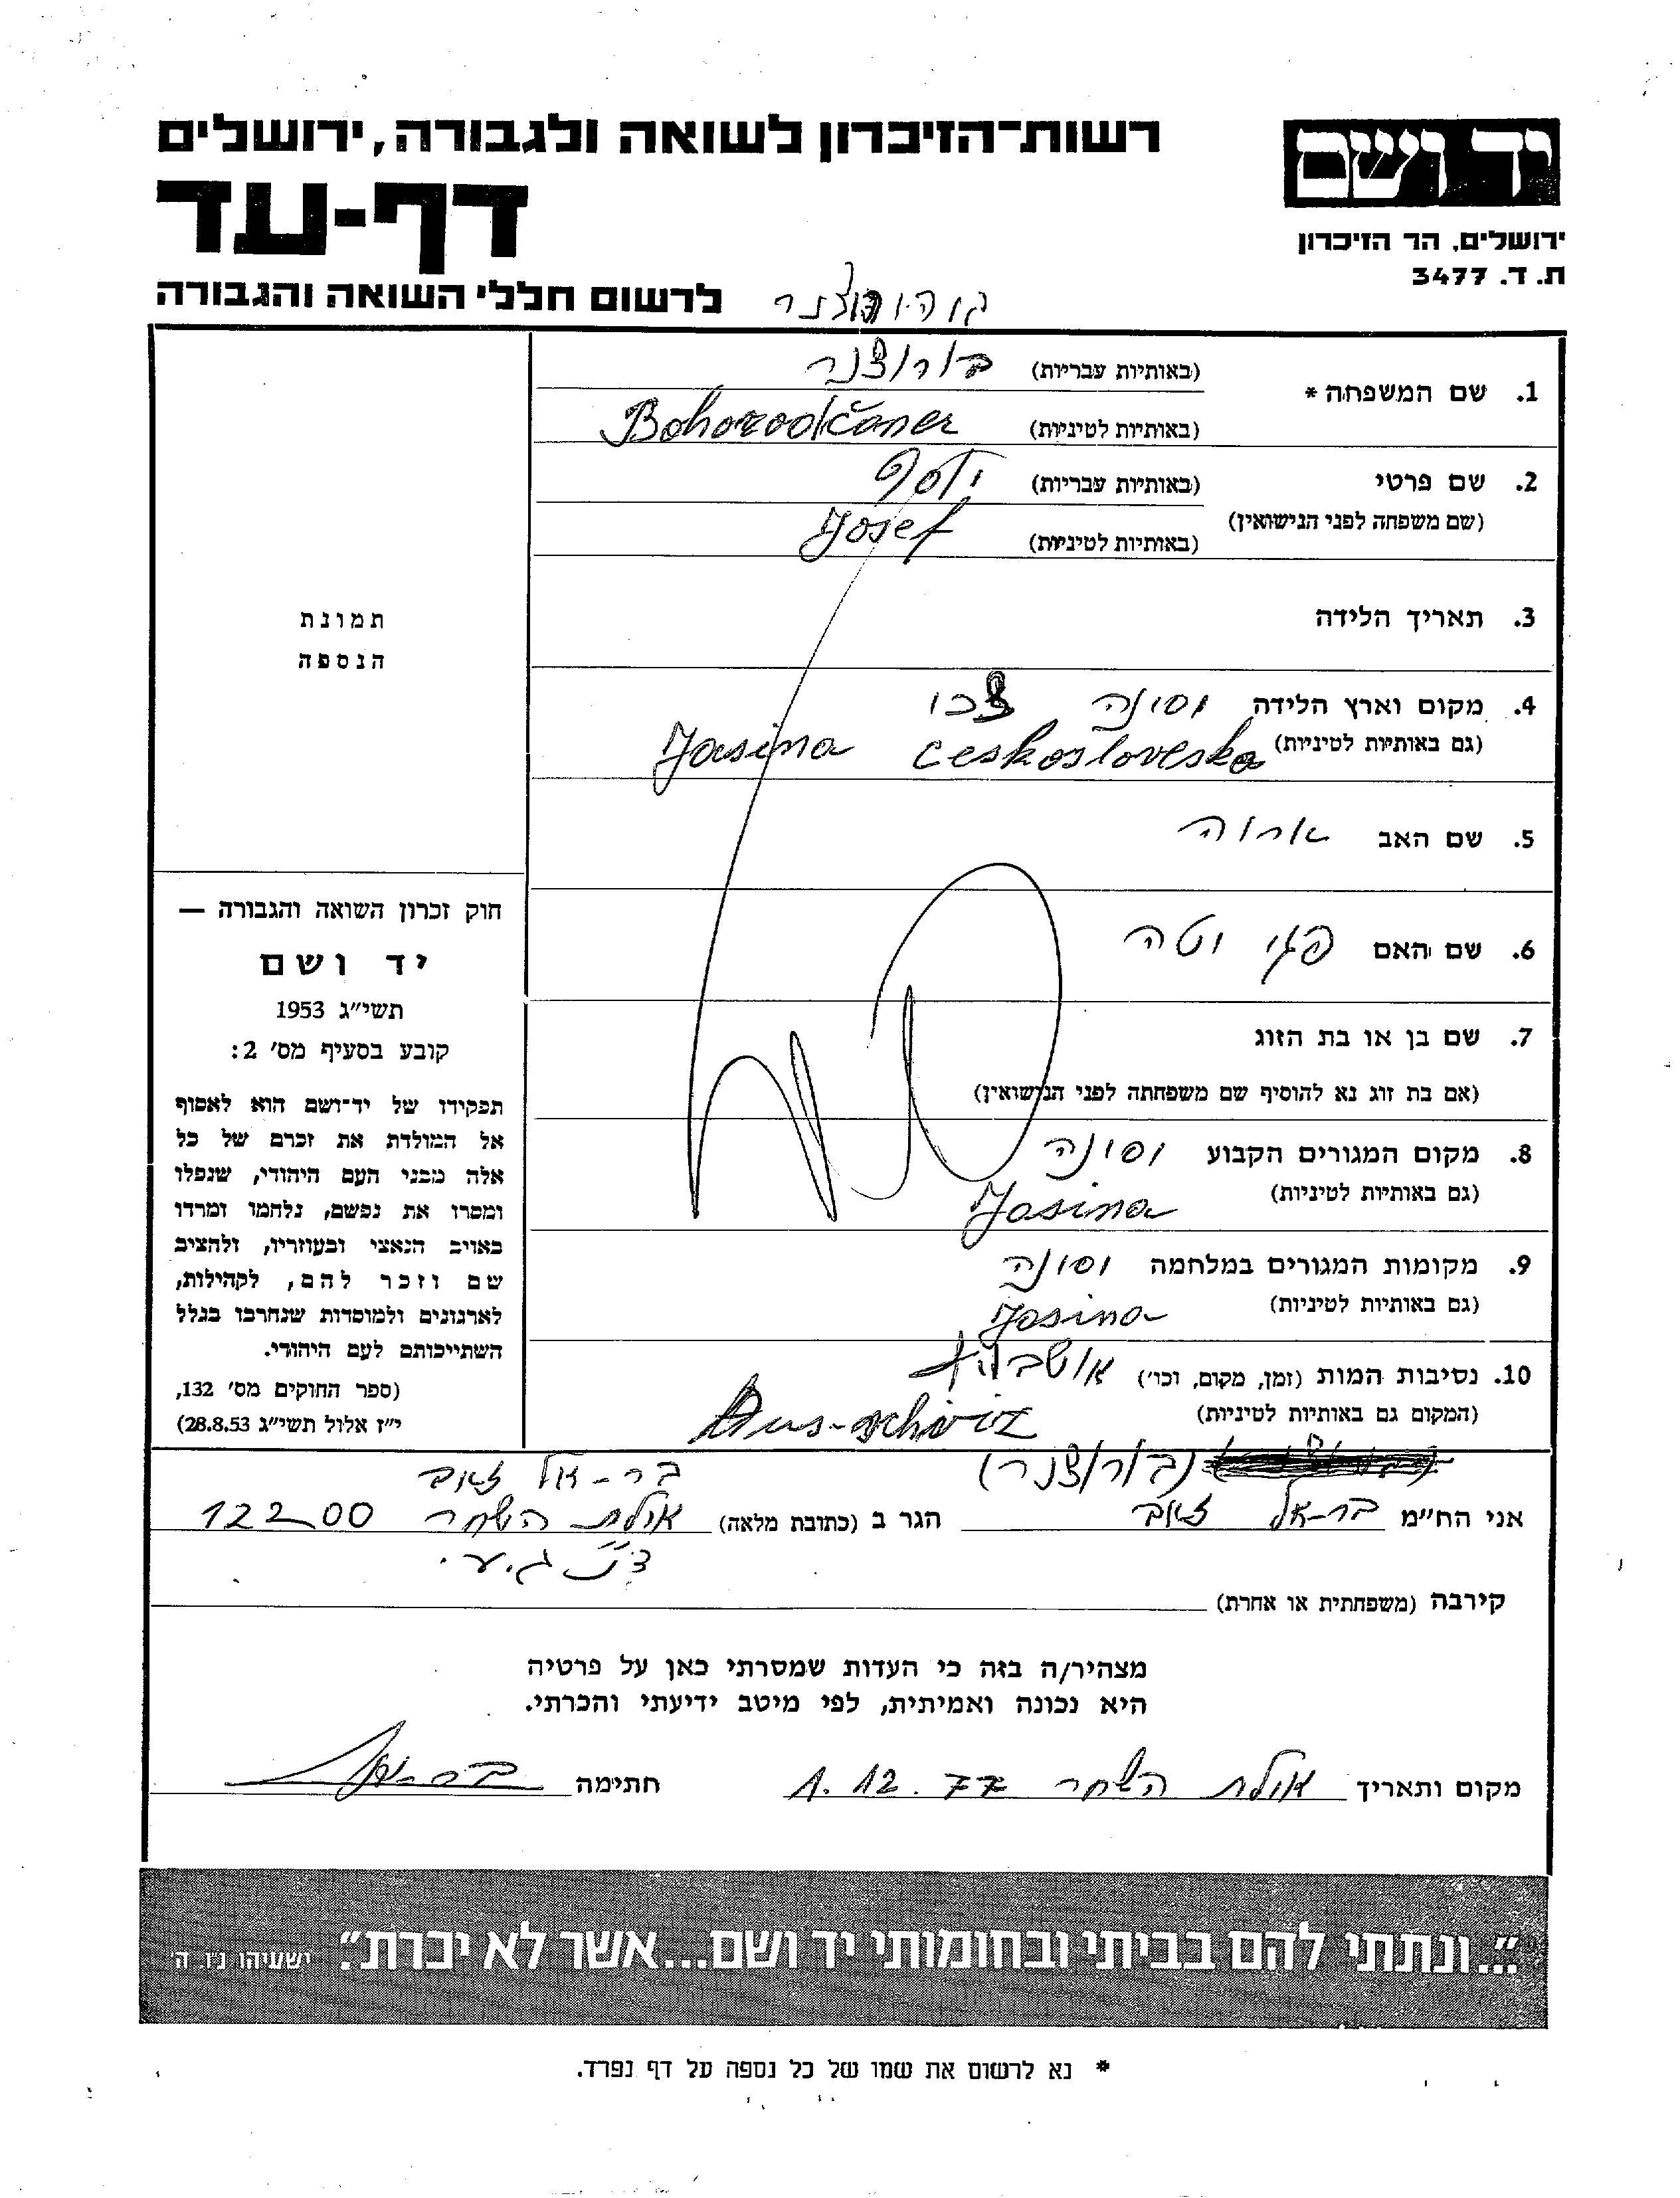 רשות־הזיכרון לשואה ולגבורה, ירושלים
יד ושם
דף-עד
ירושלים, הר הזיכרון
ת. ד. 3477
לרשום חללי השואה והגבורה
1. שם המשפחה * (באותיות עבריות) בורוצנר
(באותיות לטיניות) Bohorodčaner
2. שם פרטי (באותיות עבריות) יוסף
(שם משפחה לפני הנישואין) (באותיות לטיניות) Josef
3. תאריך הלידה
4. מקום וארץ הלידה יסינה צכו
(גם באותיות לטיניות) Jasina Ceskosloveska
5. שם האב
6. שם האם פגי יטה
7. שם בן או בת הזוג
(אם בת זוג נא להוסיף שם משפחתה לפני הנישואין)
8. מקום המגורים הקבוע יסינה
(גם באותיות לטיניות) Jasina
9. מקומות המגורים במלחמה יסינה
(גם באותיות לטיניות) Jasina
10. נסיבות המות (זמן, מקום, וכו׳)
(המקום גם באותיות לטיניות) Aus-schwiz
תמונת
הנספה
חוק זכרון השואה והגבורה —
יד ושם
תשי״ג 1953
קובע בסעיף מס׳ 2:
תפקידו של יד־ושם הוא לאסוף
אל המולדת את זכרם של כל
אלה מבני העם היהודי, שנפלו
ומסרו את נפשם, נלחמו ומרדו
באויב הנאצי ובעוזריו, ולהציב
שם וזכר להם, לקהילות,
לארגונים ולמוסדות שנחרבו בגלל
השתייכותם לעם היהודי.
(ספר החוקים מס׳ 132,
י״ז אלול תשי״ג 28.8.53)
(בורוצנר) בר-אל זאב
אני הח״מ בר-אל זאב הגר ב (כתובת מלאה) אילת השחר 12200
קירבה (משפחתית או אחרת)
מצהיר/ה בזה כי העדות שמסרתי כאן על פרטיה
היא נכונה ואמיתית, לפי מיטב ידיעתי והכרתי.
מקום ותאריך אילת השחר 1.12.77 חתימה בר-אל
״...ונתתי להם בביתי ובחומותי יד ושם...אשר לא יכרת״. ישעיהו נ״ו, ה׳
* נא לרשום את שמו של כל נספה על דף נפרד.